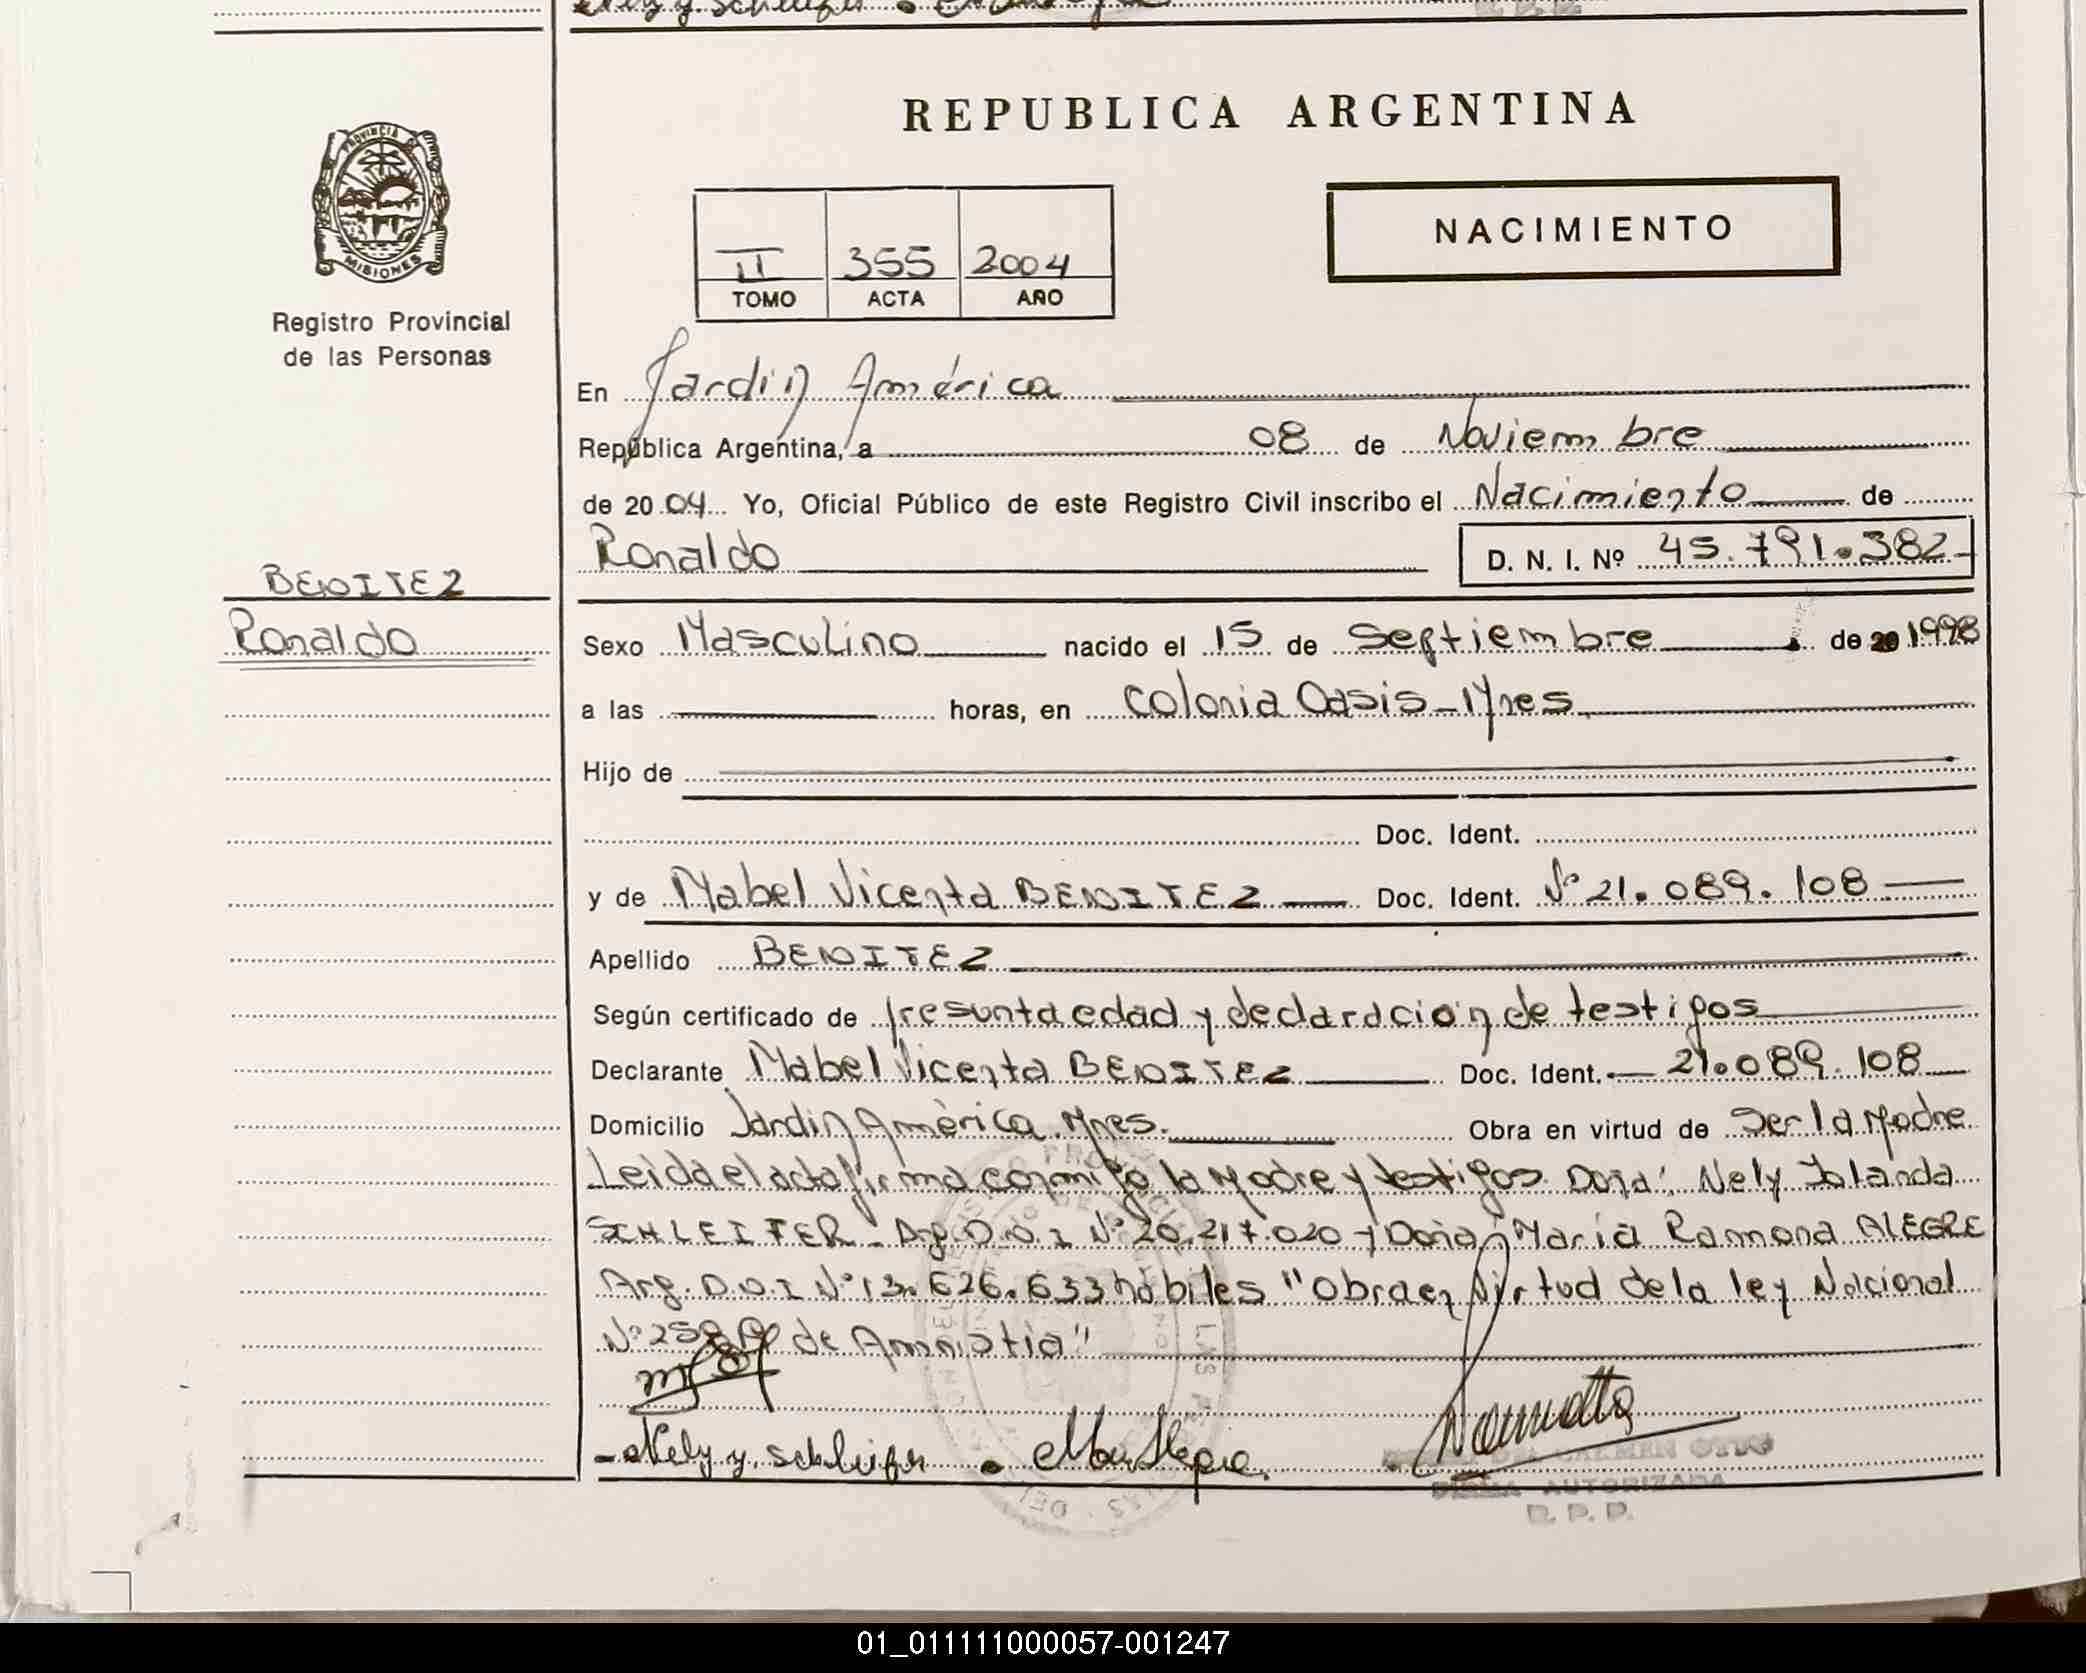 REPUBLICA ARGENTINA
PROVINCIA
MISIONES
Registro Provincial
de las Personas
NACIMIENTO
II 355 2004
TOMO ACTA AÑO
En Jardín América
República Argentina, a 08 de Noviembre
de 2004 Yo, Oficial Público de este Registro Civil inscribo el Nacimiento de
Ronaldo D. N. I. Nº 45.791.382
BENITEZ
Ronaldo
Sexo Masculino nacido el 15 de Septiembre de 20 1998
a las horas, en Colonia Oasis - Mnes
Hijo de
Doc. Ident.
y de Mabel Vicenta BENITEZ Doc. Ident. Nº 21.089.108
Apellido BENITEZ
Según certificado de presunta edad y declaración de testigos
Declarante Mabel Vicenta BENITEZ Doc. Ident. 21.089.108
Domicilio Jardín América. Mnes. Obra en virtud de Ser la Madre
Leida el acta firma conmigo la Madre y testigos Doña: Nely Iolanda
SCHLEIFER - Arg. D.N.I Nº 20.217.020 y Doña: María Ramona ALEGRE
Arg. D.N.I Nº 13.626.633 hábiles "Obra en Virtud de la ley Nacional
de Amnistia"
Nely y. Schleifer
CARMEN OTTO
FIRMA AUTORIZADA
R. P. P.
01_011111000057-001247